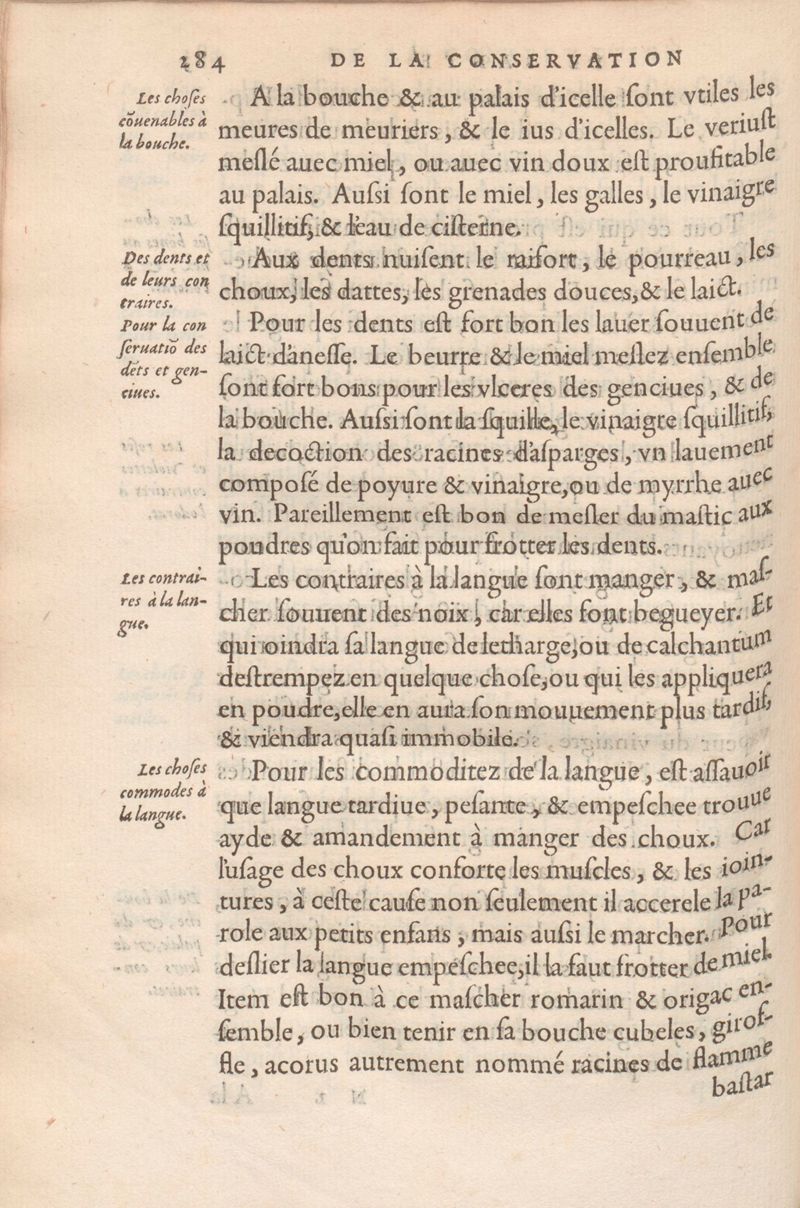 284 DE LA CONSERVATION
Les choſes
cōuenables à
la bouche.
A la bouche & au palais d'icelle ſont vtiles les
meures de meuriers, & le ius d'icelles. Le veriuſt
meſlé auec miel, ou auec vin doux eſt proufitable
au palais. Auſsi ſont le miel, les galles, le vinaigre
ſquillitif, & l'eau de ciſterne.
Des dents et
de leurs con
traires.
Aux dents nuiſent le raifort, le pourreau, les
choux, les dattes, les grenades douces, & le laict.
Pour la con
ſeruatiō des
dēts et gen-
ciues.
Pour les dents eſt fort bon les lauer ſouuent de
laict d'aneſſe. Le beurre & le miel meſlez enſemble
ſont fort bons pour les vlceres des genciues, & de
la bouche. Auſsi ſont la ſquille, le vinaigre ſquillitif,
la decoction des racines d'aſparges, vn lauement
compoſé de poyure & vinaigre, ou de myrrhe auec
vin. Pareillement eſt bon de meſler du maſtic aux
poudres qu'on fait pour frotter les dents.
Les contrai-
res à la lan-
gue.
Les contraires à la langue ſont manger, & maſ-
cher ſouuent des noix, car elles font begueyer. Et
qui oindra ſa langue de letharge, ou de calchantum
deſtrempez en quelque choſe, ou qui les appliquera
en poudre, elle en aura ſon mouuement plus tardif,
& viendra quaſi immobile.
Les choſes
commodes à
la langue.
Pour les commoditez de la langue, eſt aſſauoir
que langue tardiue, peſante, & empeſchee trouue
ayde & amandement à manger des choux. Car
l'uſage des choux conforte les muſcles, & les ioin-
tures, à ceſte cauſe non ſeulement il accerele la pa-
role aux petits enfans, mais auſsi le marcher. Pour
deſlier la langue empeſchee, il la faut frotter de miel.
Item eſt bon à ce maſcher romarin & origac en-
ſemble, ou bien tenir en ſa bouche cubeles, girof-
fle, acorus autrement nommé racines de flamme
baſtar